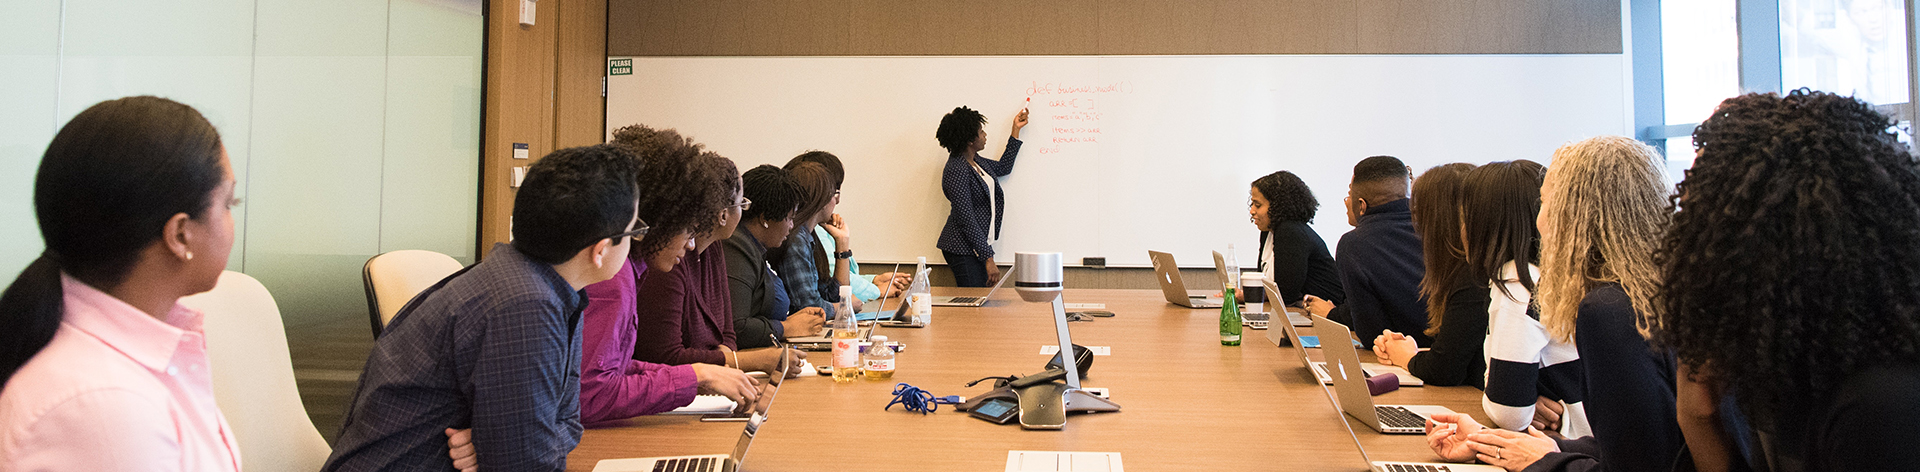 PLEASE
CLEAN
def business_model ( )
arr = [ ]
items = "a","b","c"
items => arr
Return arr
end